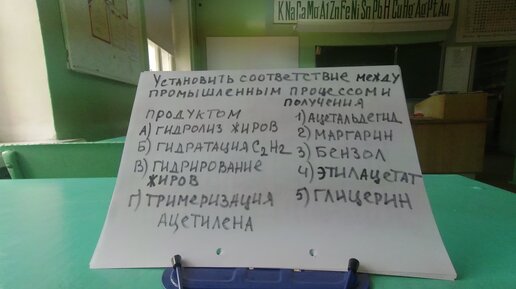 K Na Ca Mg Al Zn Fe Ni Sn Pb H Cu Hg Ag Pt Au
УСТАНОВИТЬ СООТВЕТСТВИЕ МЕЖДУ
ПРОМЫШЛЕННЫМ ПРОЦЕССОМ И
ПОЛУЧЕНИЯ
ПРОДУКТОМ
А) ГИДРОЛИЗ ЖИРОВ
Б) ГИДРАТАЦИЯ C2H2
В) ГИДРИРОВАНИЕ
ЖИРОВ
Г) ТРИМЕРИЗАЦИЯ
АЦЕТИЛЕНА
1) АЦЕТАЛЬДЕГИД
2) МАРГАРИН
3) БЕНЗОЛ
4) ЭТИЛАЦЕТАТ
5) ГЛИЦЕРИН